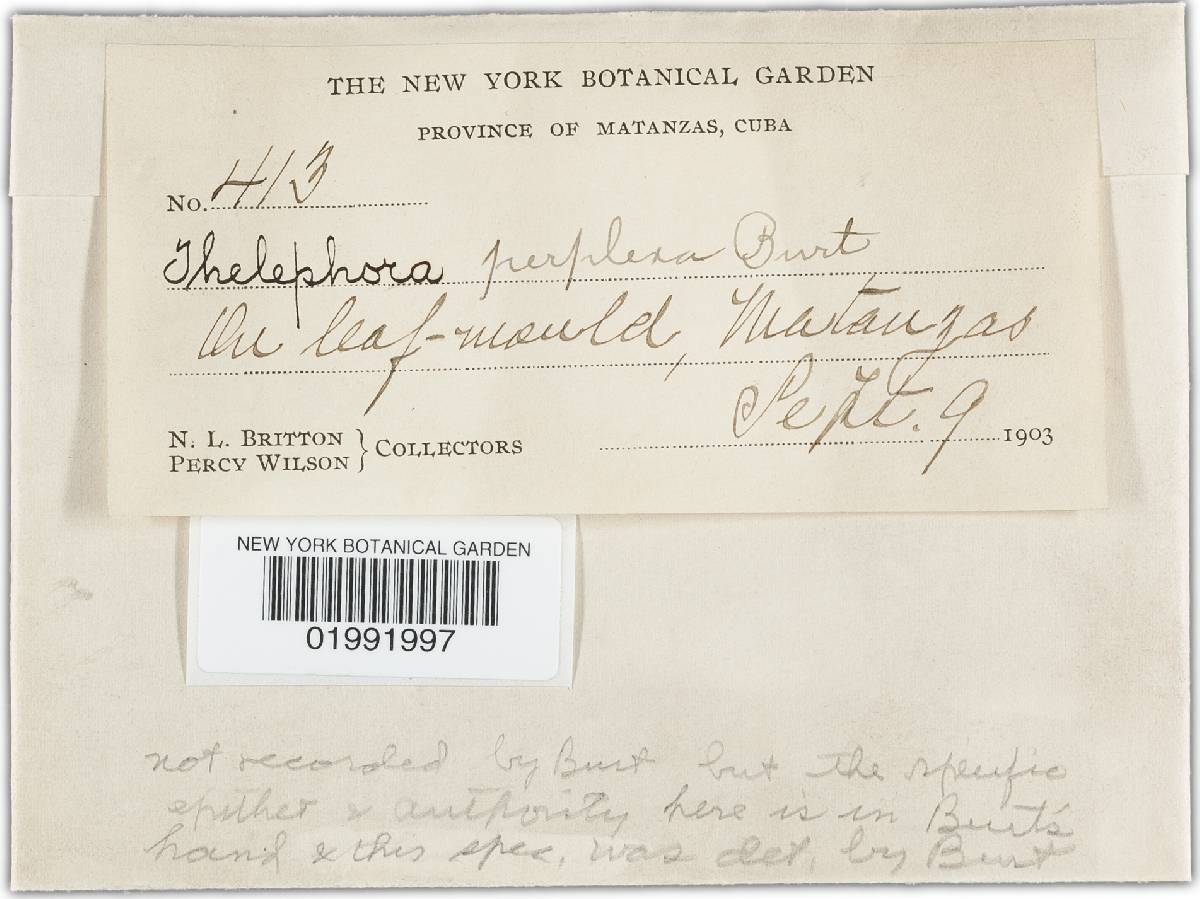 THE NEW YORK BOTANICAL GARDEN
PROVINCE OF MATANZAS, CUBA
No. 413
Thelephora perplexa Burt
On leaf-mould, Matanzas
Sept. 9 1903
N. L. BRITTON
PERCY WILSON } COLLECTORS
NEW YORK BOTANICAL GARDEN
01991997
not recorded by Burt but the specific
epithet & authority here is in Burt's
hand & this spec. was det. by Burt